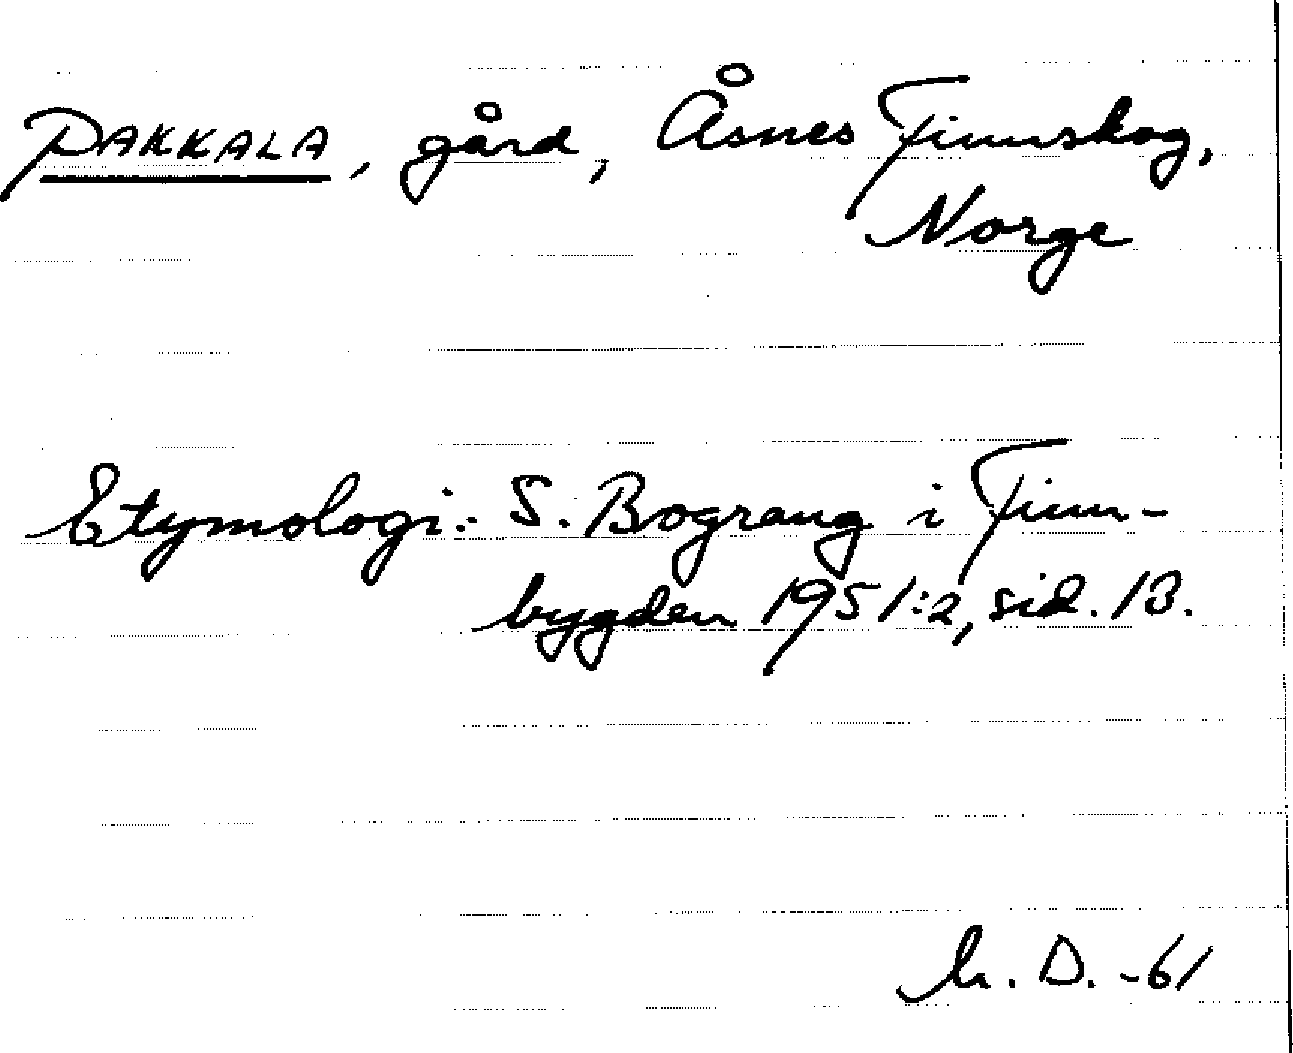 PAKKALA, gård, Åsnes Finnskog,
Norge
Etymologi: S. Bograng i Finn-
bygden 1951:2, sid. 13.
D. -61